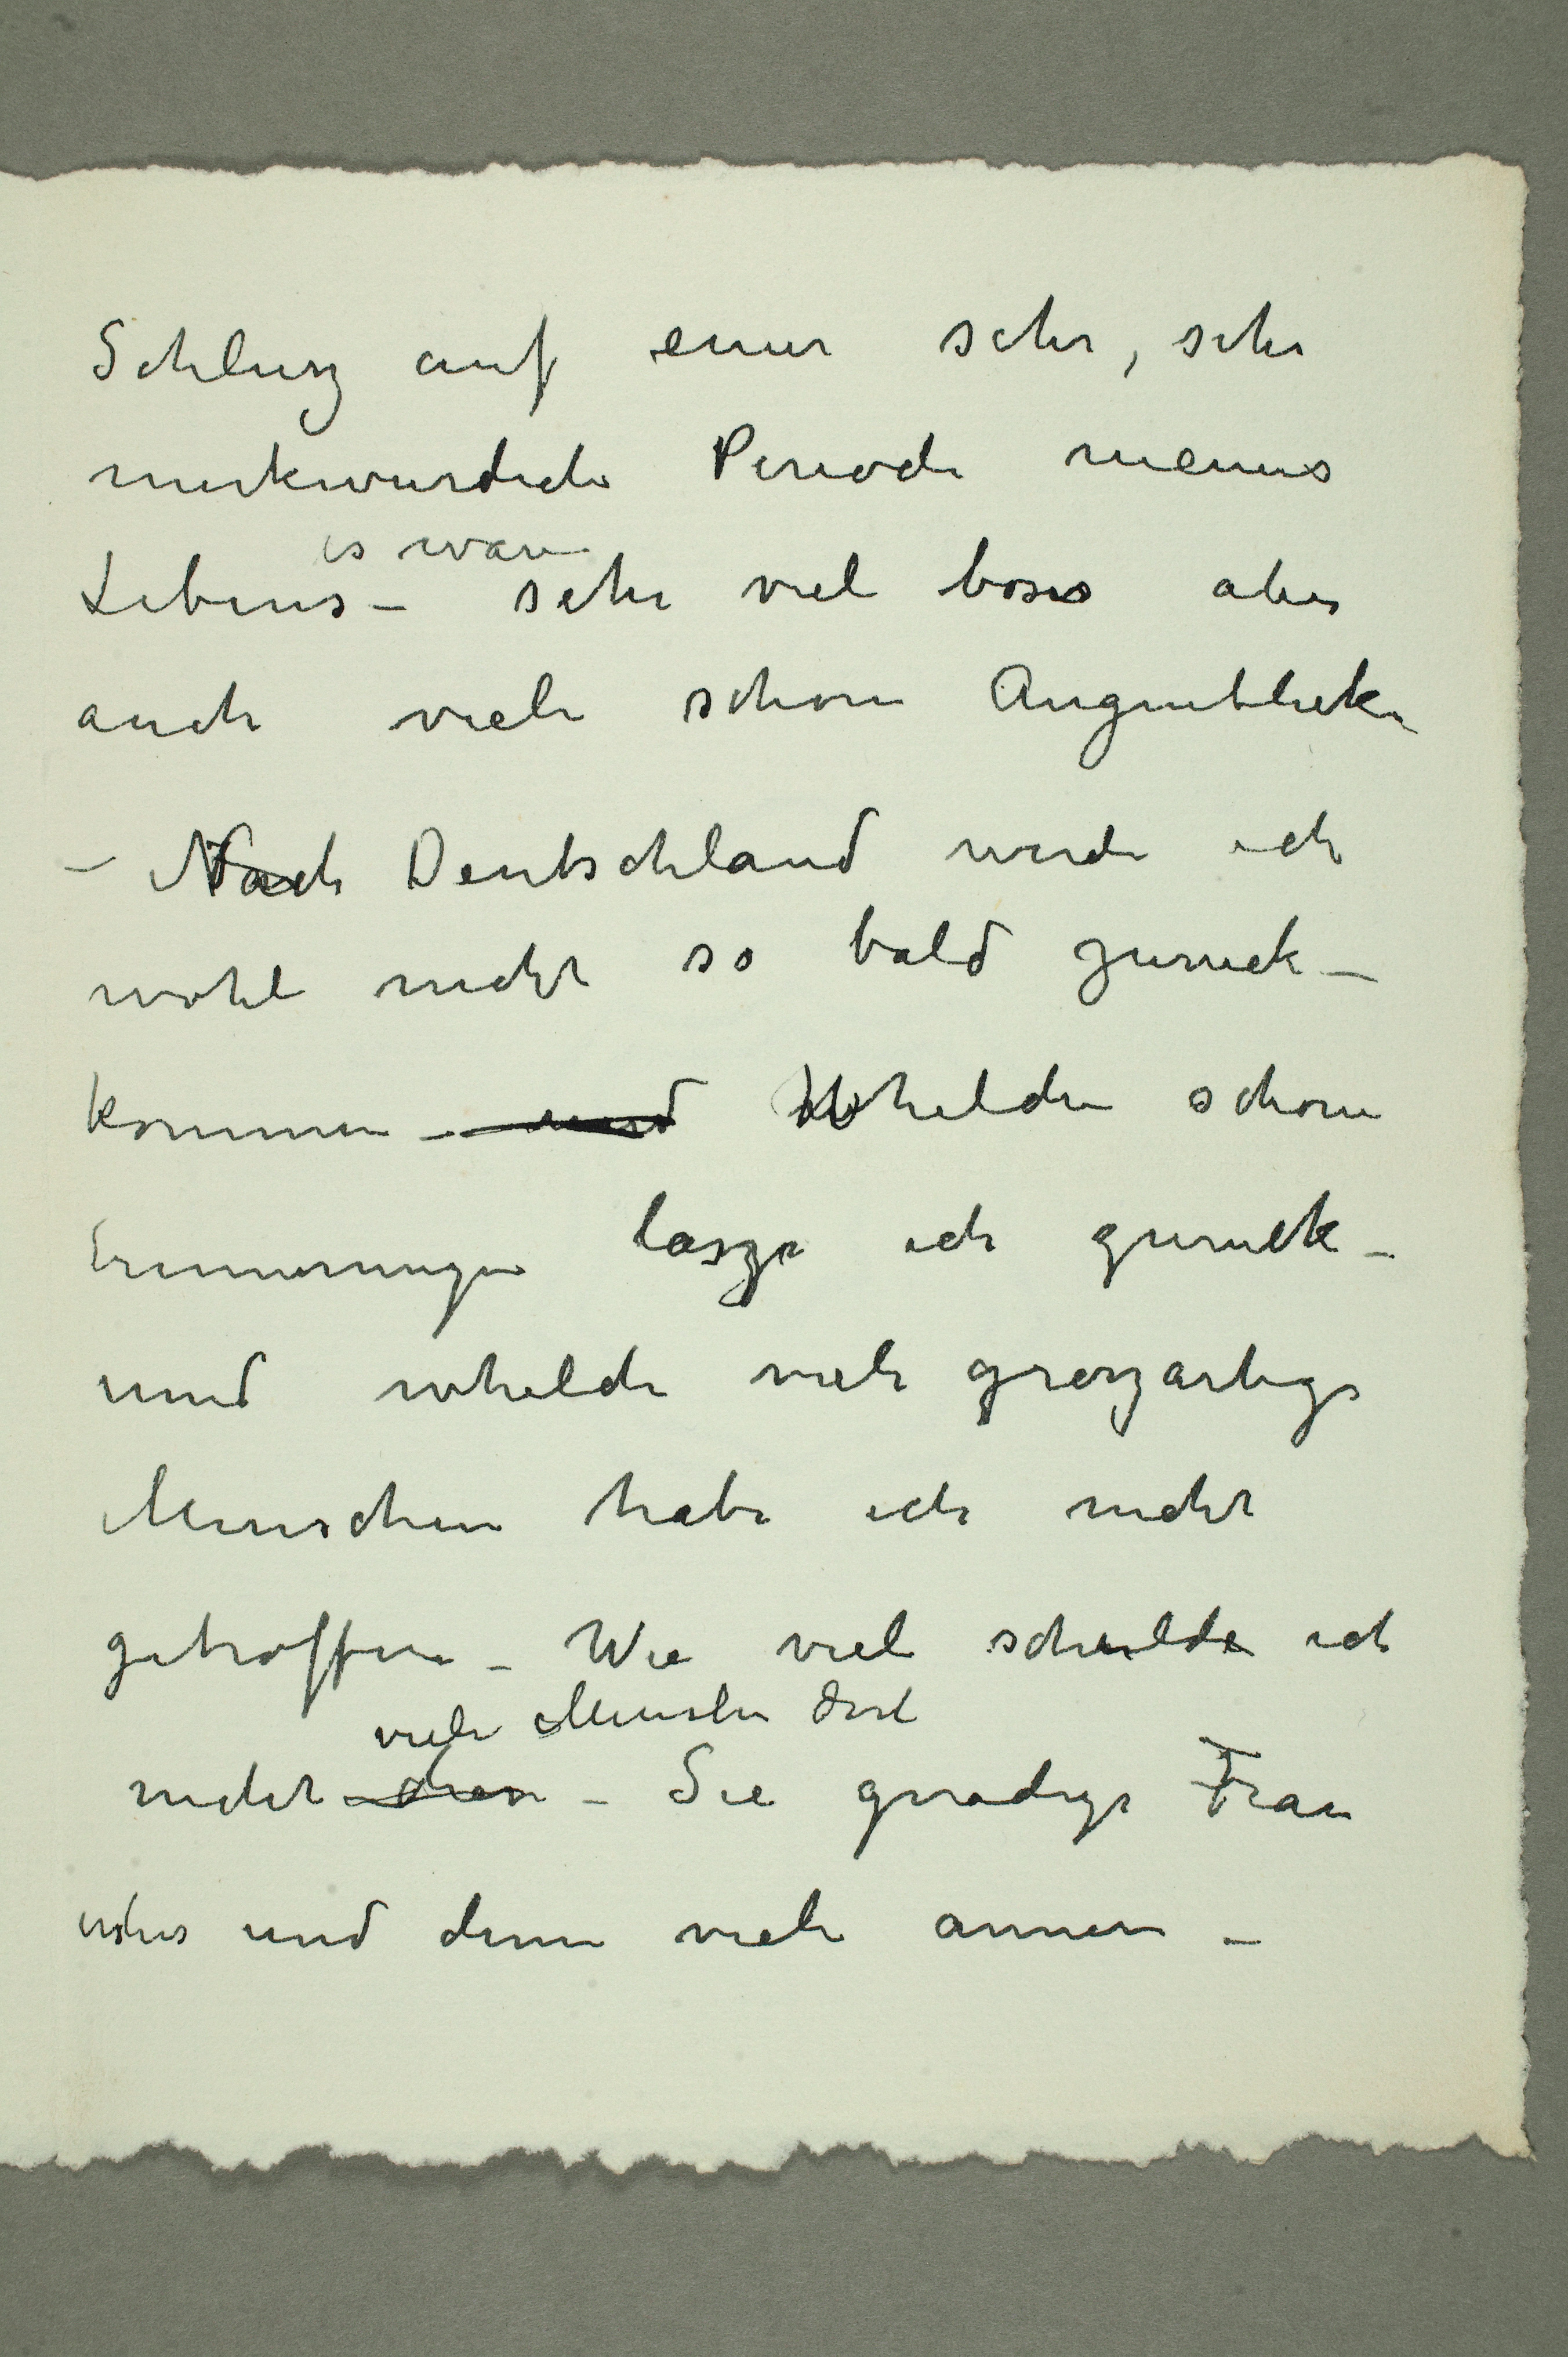 Schlusz auf einer sehr, sehr
merkwurdiche Periode meines
es waren
Lebens – sehr viel boses aber
auch viele schone Augenblicke
– Nach Deutschland werde ich
wohl nicht so bald zuruck –
kommen – und Whelche schone
Erinnerungen lasze ich zuruck –
und whelche viele groszartige
Menschen habe ich nicht
getroffen – Wie viel schulde ich
viele Menschen dort
nicht – Sie gnadige Frau
erstes und denn viele annern –